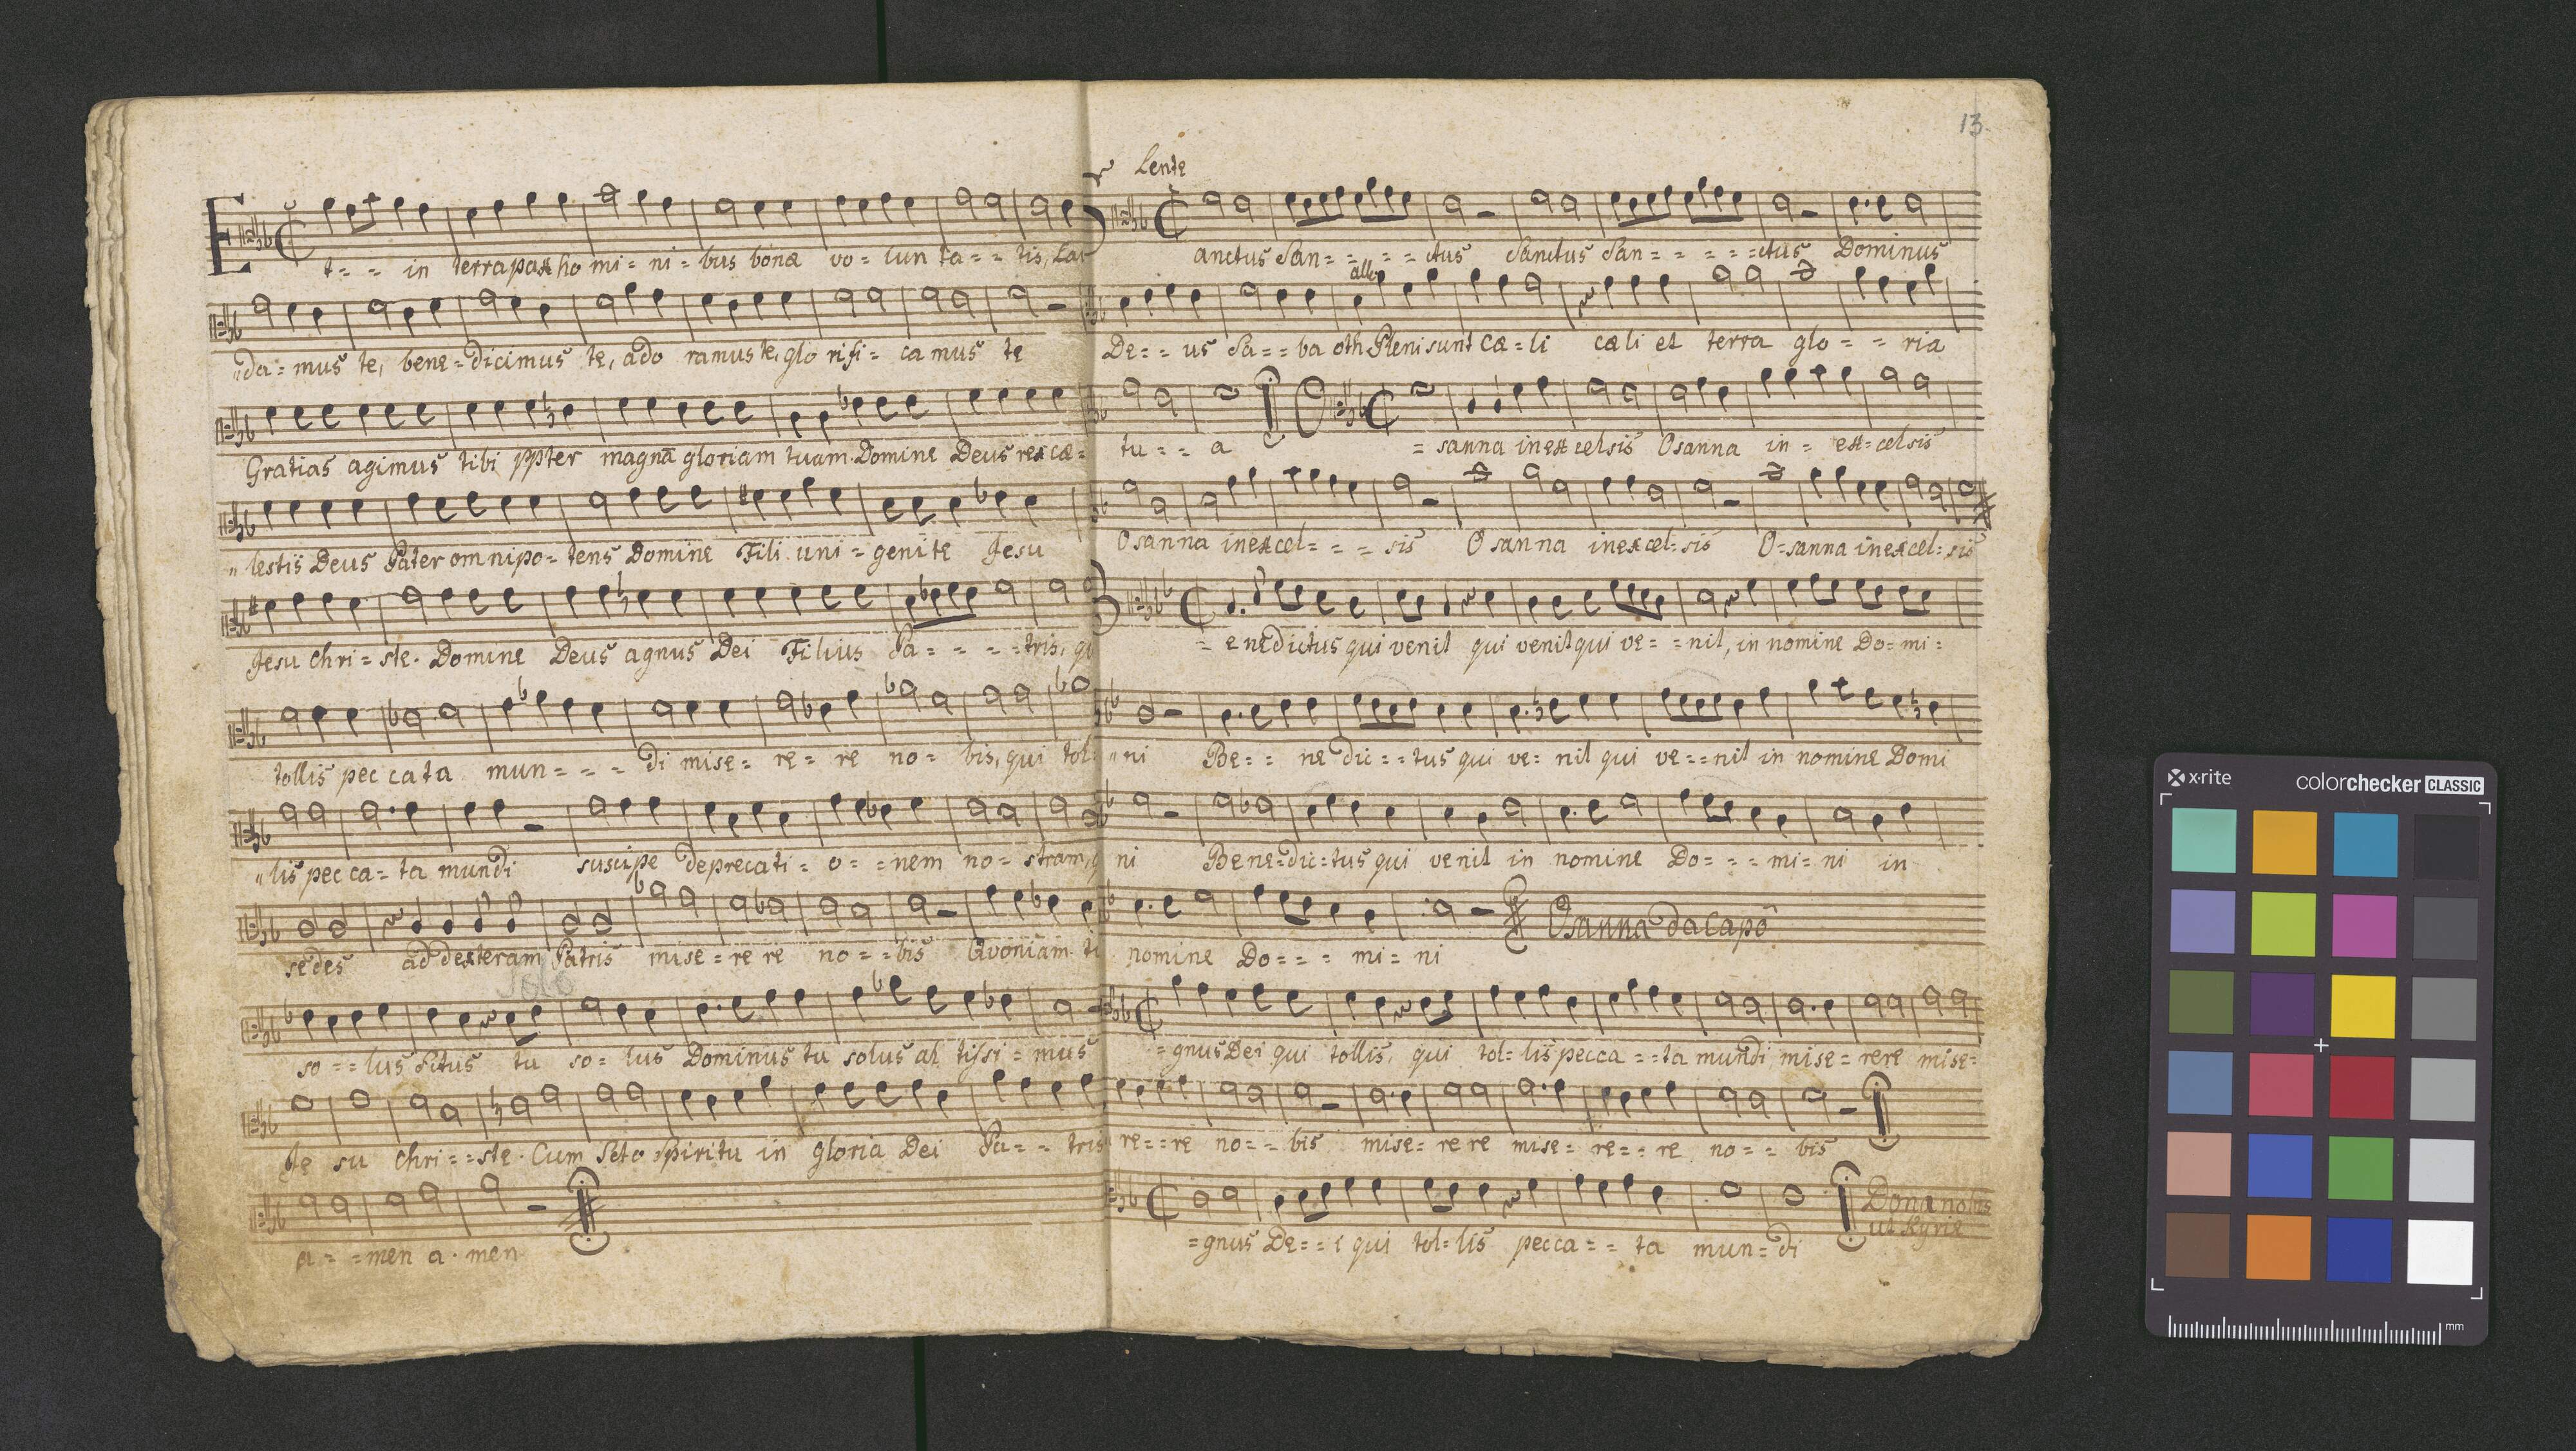 Et = - - in terra pax ho mi = ni = bus bonæ vo = lun ta = - = tis, Lau
"da = mus te, bene = dicimus te, ado ramus te, glo rifi = ca mus te
Gratias agimus tibi ppter magnã gloriam tuam. Domine Deus rex cæ =
"lestis Deus Pater omnipo = tens Domine Fili uni = genite Jesu
Jesu chri = ste. Domine Deus agnus Dei Filius Pa = - - = tris, qi
tollis pec ca ta mun = - = - di mise = re = re no = bis, qui tol
"lis pec ca = ta mundi suscipe deprecati = o = = nem no = stram, q
sedes ad dexteram Patris mise = re re no = = bis Quoniam ti
Solo
so = = lus Sctus tu so = lus Dominus tu solus al tissi = mus
Je su chri = = ste. Cum Scto Spiritu in gloria Dei Pa = - tris
a - = men a. men
13
Lente
anctus San = - = - = ctus Sanctus San = - = - = ctus Dominus
all:
De = = us Sa = = ba oth Pleni sunt Cæ = li cæli et terra glo = = ria
tu = = a O = sanna in excelsis Osanna in = ex = celsis
Osanna in excel = - = sis O sanna in excel = sis O = sanna in excel = sis
B = enedictus qui venit qui venit qui ve = = nit, in nomine Do = mi =
"ni Be = = ne dic = = tus qui ve = nit qui ve = = nit in nomine Domi
ni Bene = dic = tus qui venit in nomine Do = - = mi = ni in
Osanna da Capo
nomine Do = - = mi = ni
= gnus Dei qui tollis, qui tol = lis pecca = = ta mundi mise = rere mise =
re = = re no = = bis mise = re re mise = re = = re no = = bis
Dona nobis
ut Kyrie
= gnus De = = i qui tol = lis pecca = = ta mun = di
x·rite
colorchecker CLASSIC
mm